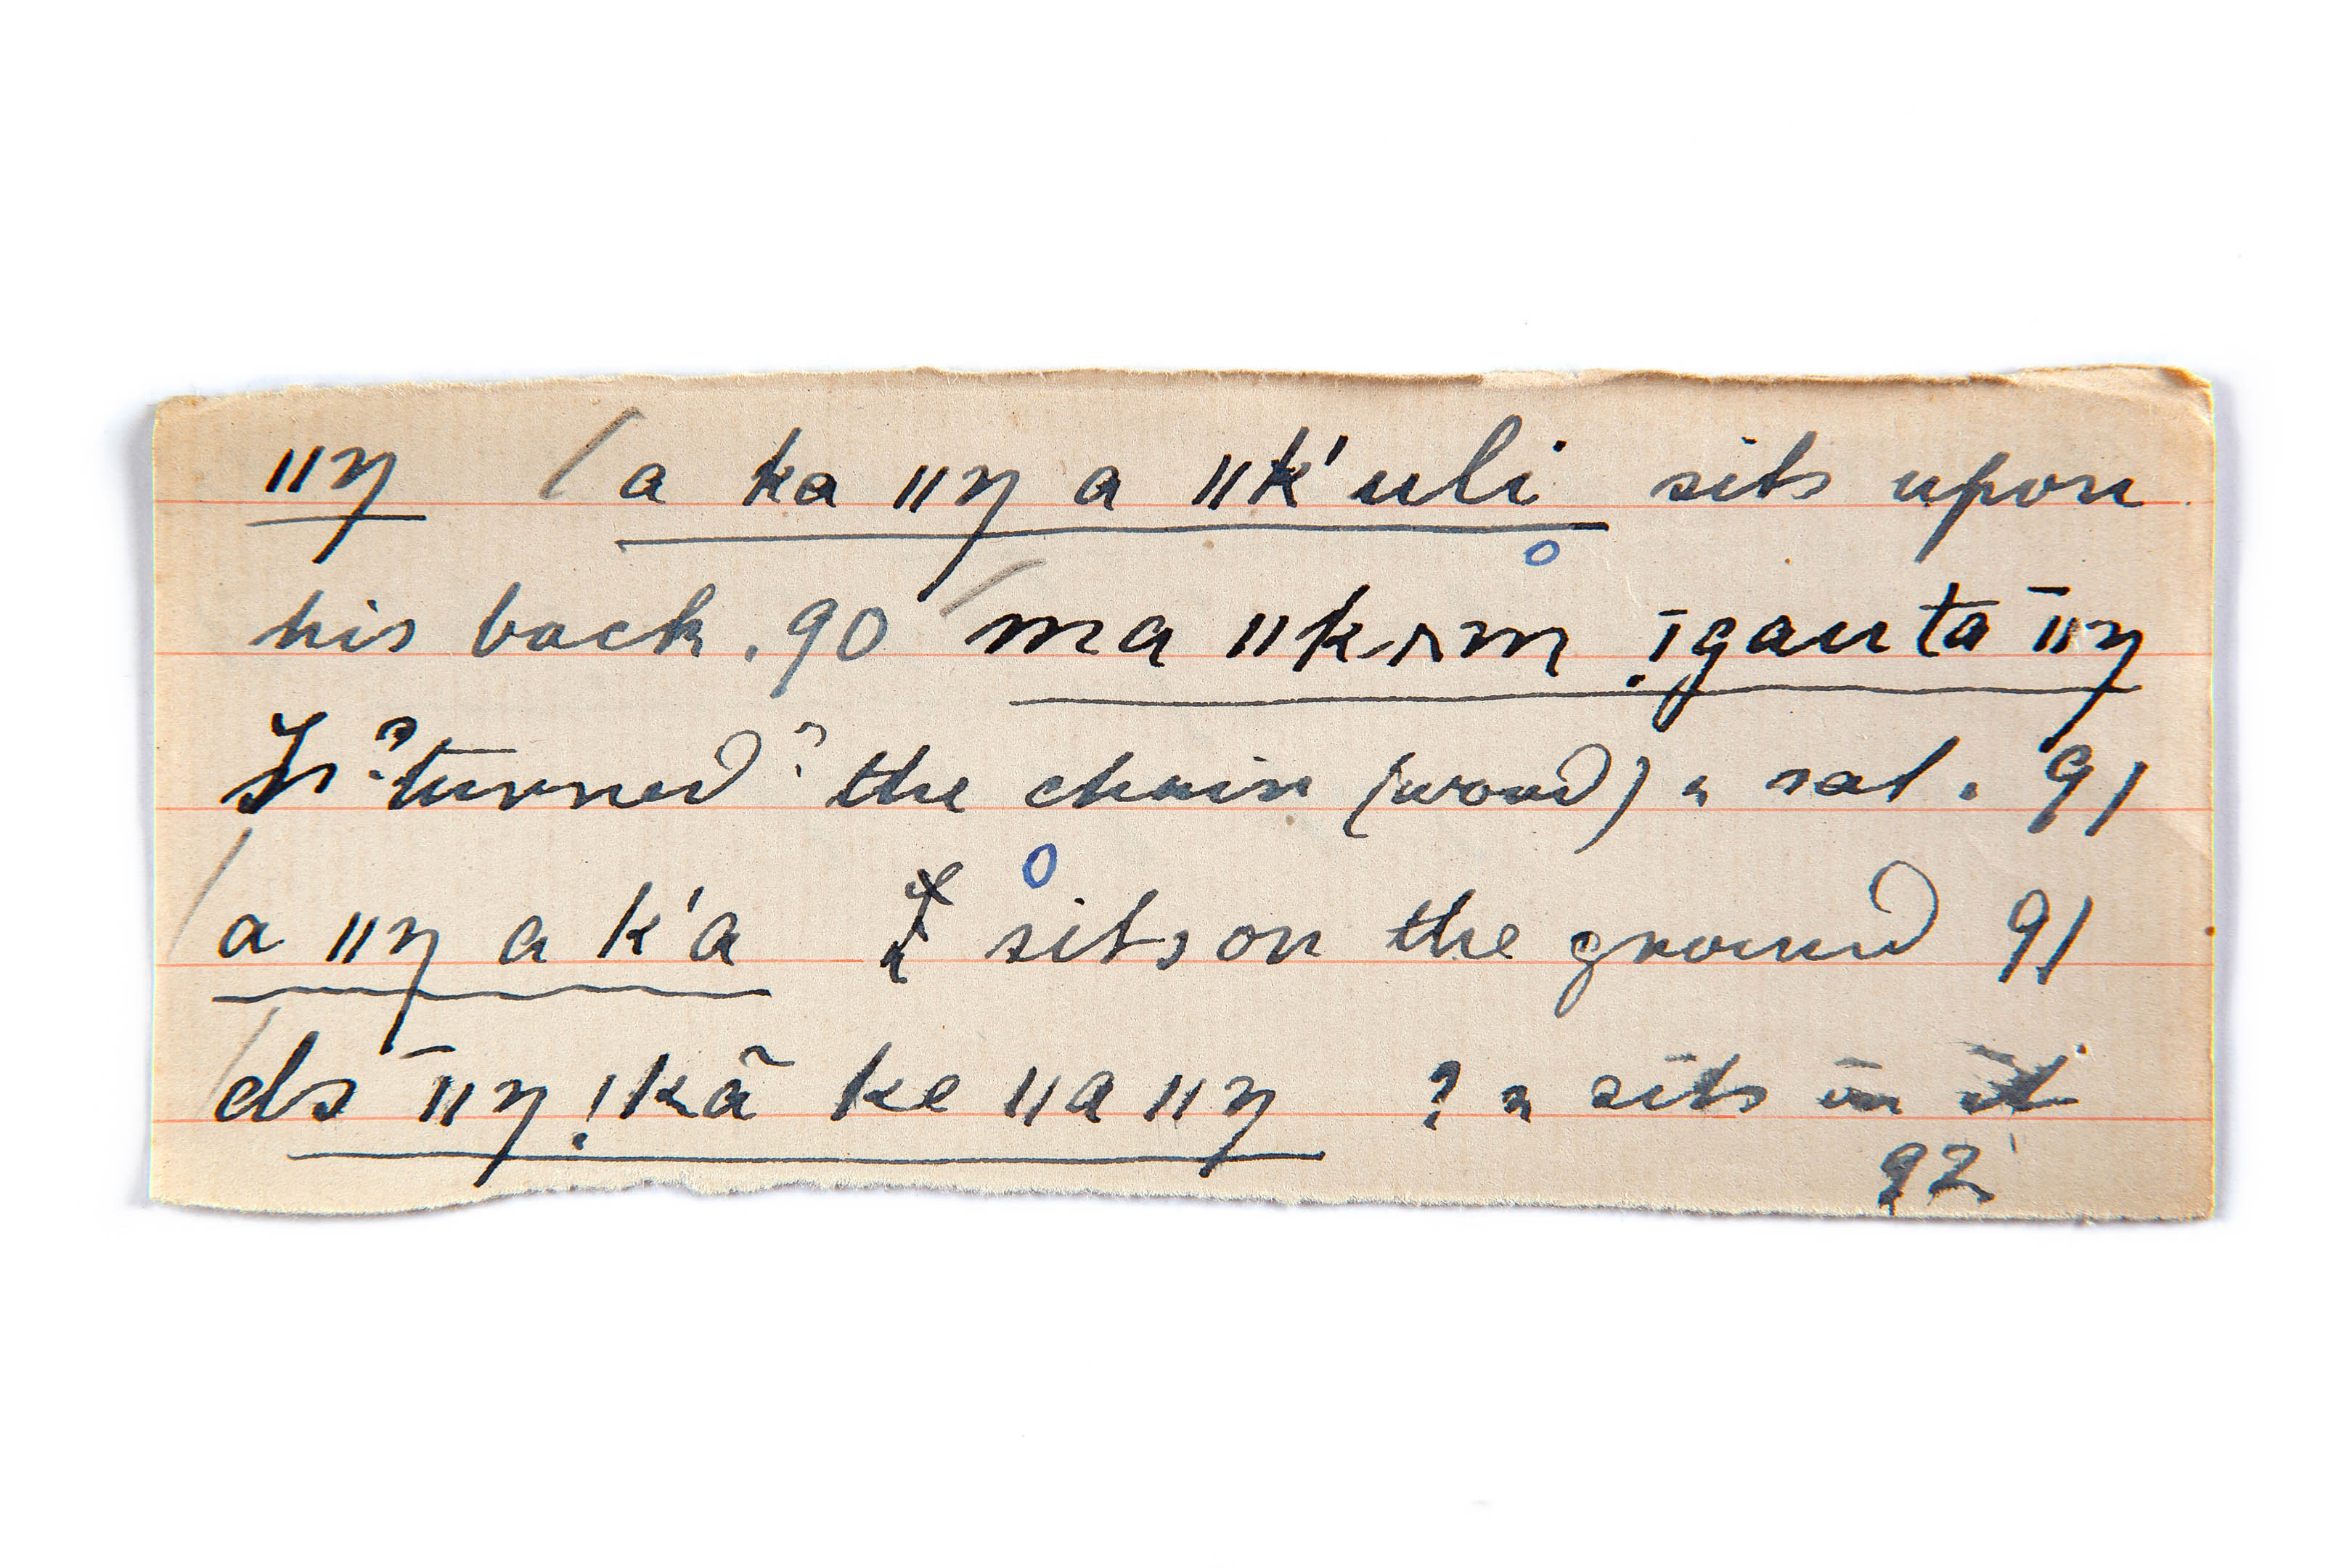 ǁŋ /a ka ǁŋ a ǁk'uli sits upon
his back. 90 /ma ǁkəm !gauta ǁŋ
?turned? the chair (wood) & sat. 91
/a ǁŋ a k'a sits on the ground 91
/ds ǁŋ !kã ke ǁa ǁŋ ? & sits in it
92